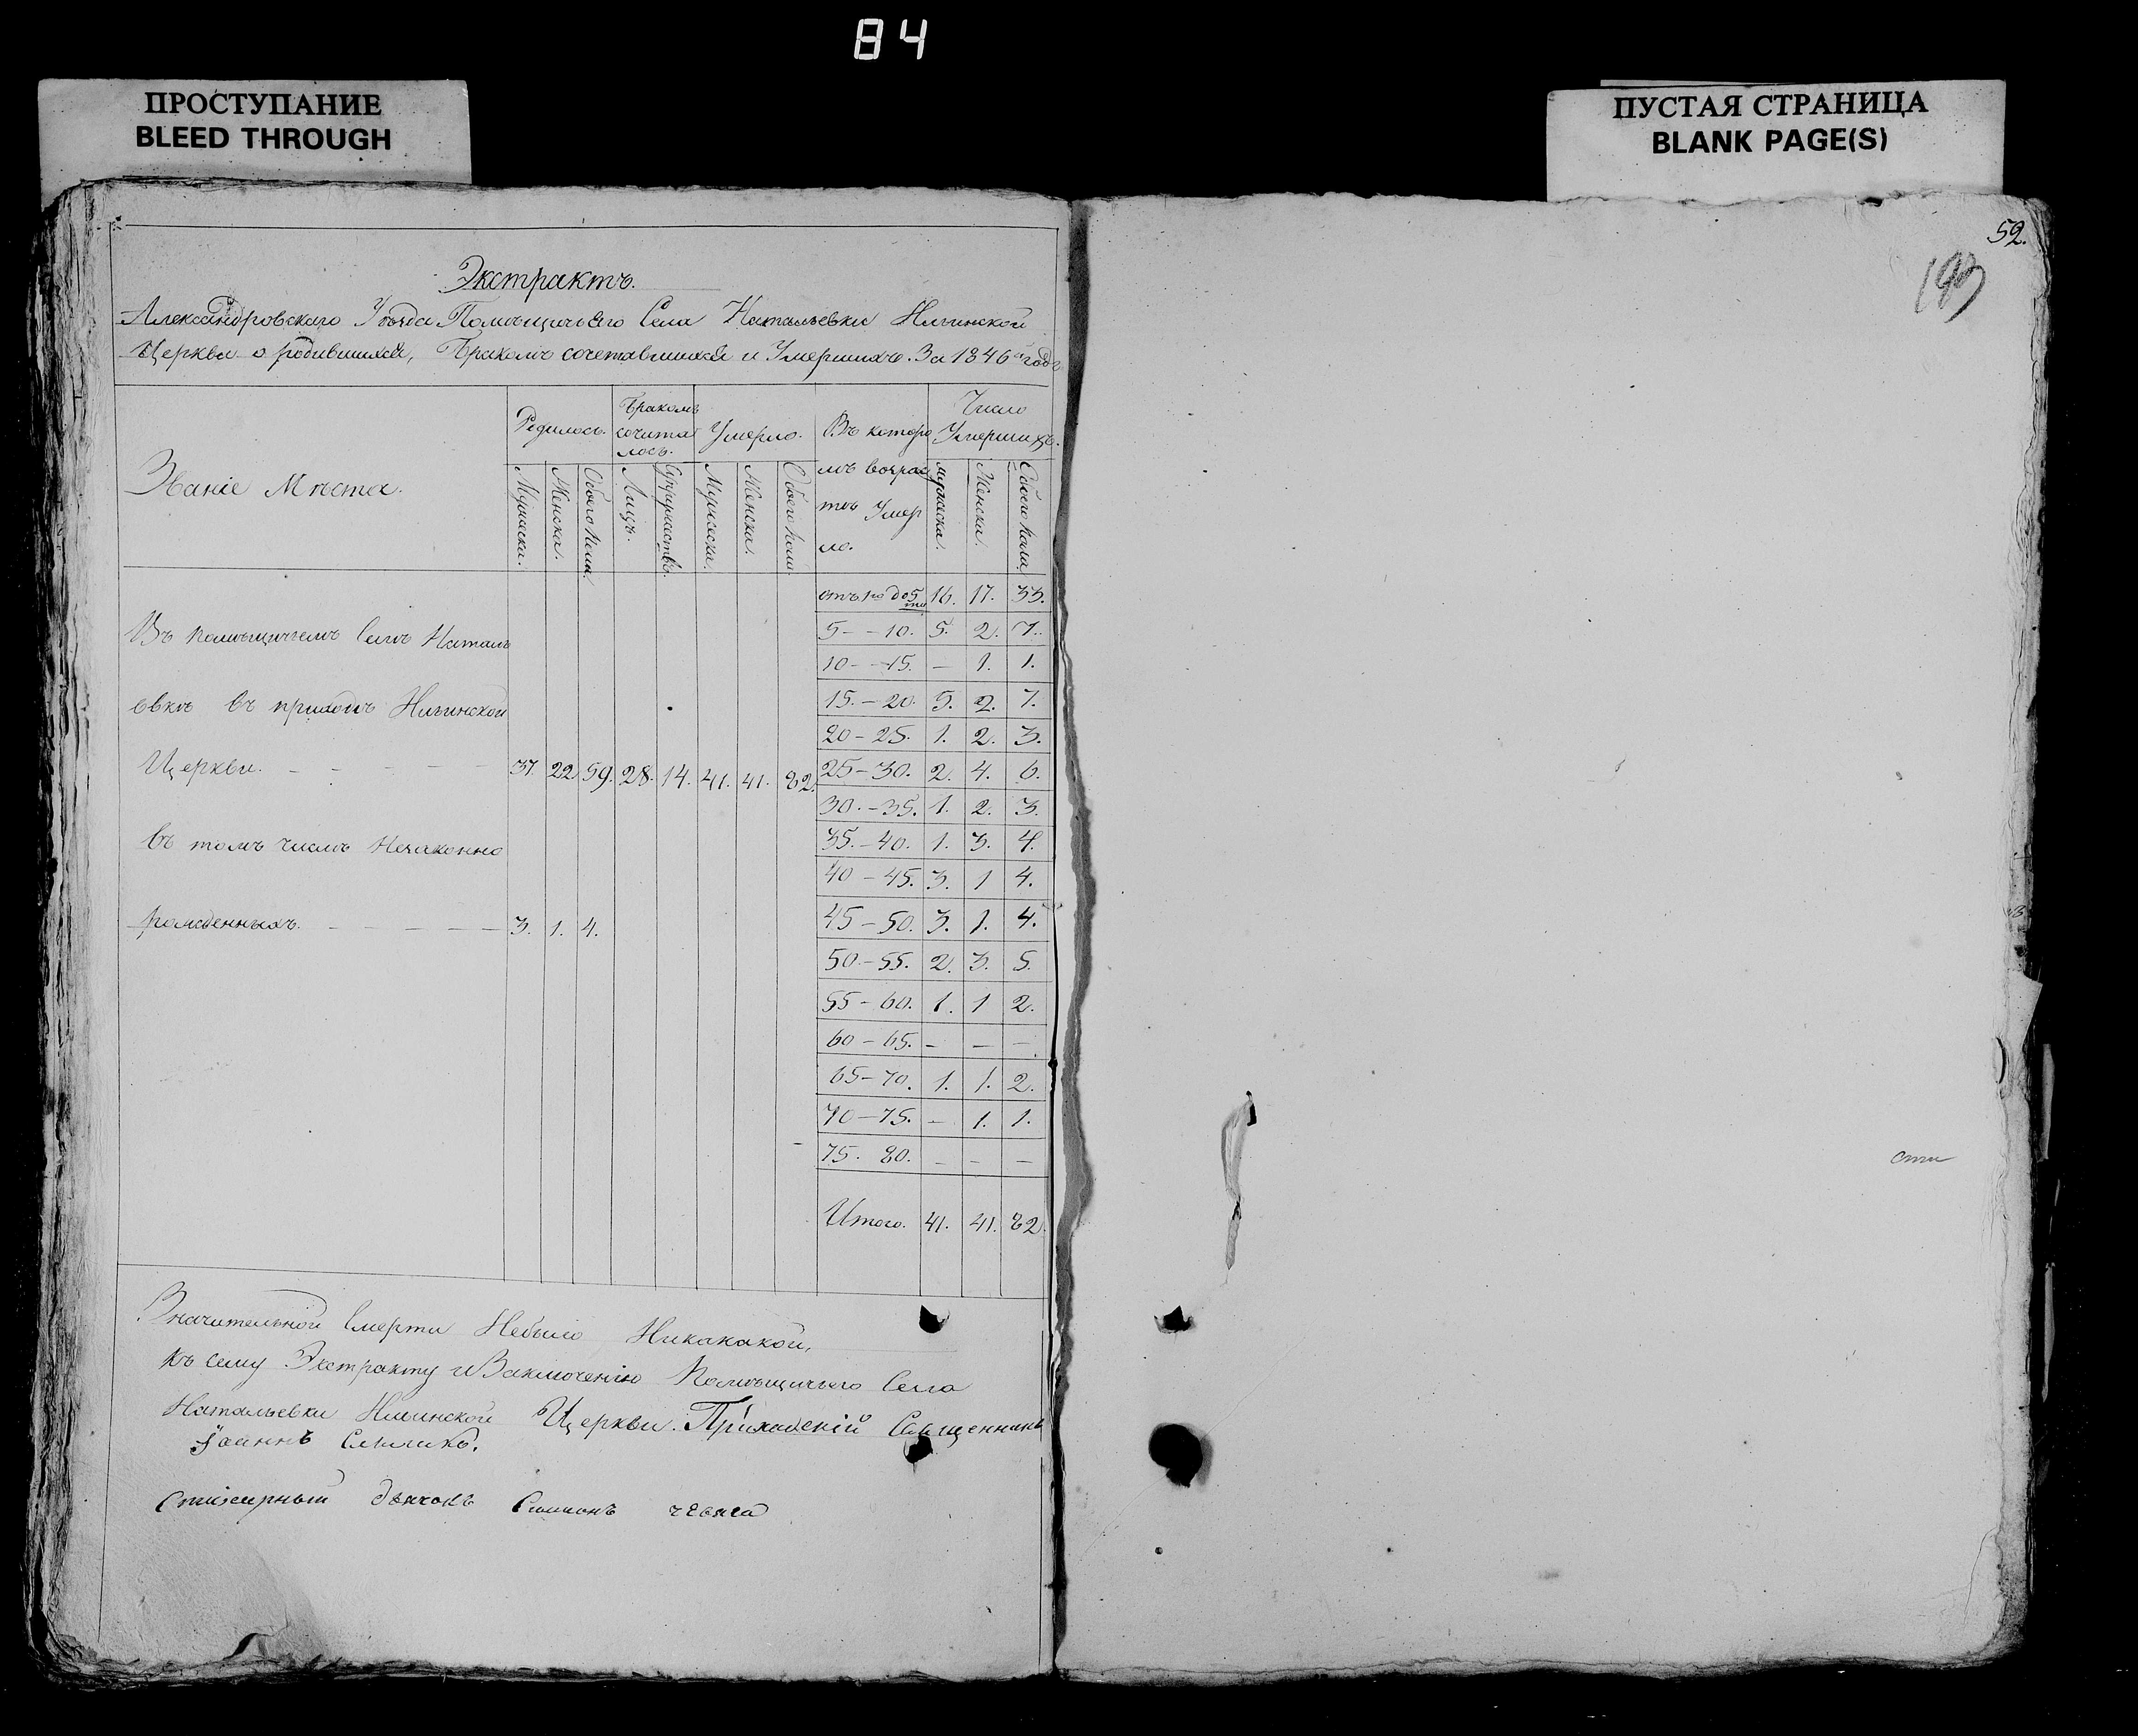 84
ПРОСТУПАНИЕ
BLEED THROUGH
ПУСТАЯ СТРАНИЦА
BLANK PAGE(S)
52.
Экстрактъ.
Александровскаго Уѣзда Помѣщичьяго Села Натальевки Ильинской
Церкви о родившихся, Бракомъ сочетавшихся и Умершихъ. За 1846й годъ
Званіе Мѣста.
Родилось.
Бракомъ
сочитал
лось.
Умерло.
Въ которо
мъ возрас
тѣ Умер
ло.
Число
Умершихъ.
Мужеска. Женска. Обоего пола. Лицъ. Супружествъ. Мужеска. Женска. Обоего пола. мужеска. Женска. Обоего пола.
отъ 1го до 5ти 16. 17. 33.
Въ помѣщичьемъ Селѣ Наталь
5 - - 10. 5. 2. 7.
10 - - 15. — 1. 1.
евкѣ въ приходѣ Ильинской
15. - 20. 5. 2. 7.
20 - 25. 1. 2. 3.
Церкви. - - - - - 37. 22. 59. 28. 14. 41. 41. 82.
25 - 30. 2. 4. 6.
30. - 35. 1. 2. 3.
въ томъ числѣ Незаконно
35. - 40. 1. 3. 4.
40 - 45. 3. 1 4.
рожденныхъ. - - - - - 3. 1. 4.
45 - 50. 3. 1. 4.
50. - 55. 2. 3. 5.
55 - 60. 1. 1 2.
60 - 65. - — —
65 - 70. 1. 1. 2.
70 - 75. — 1. 1.
75. 80. - - —
Итого. 41. 41. 82.
Значительной Смерти Небыло Никакакой,
къ сему Экстракту и Заключенію Помѣщичьего Села
Натальевки Ильинской Церкви. Приходскій Священникъ
Іоаннъ
дьячокъ Симионъ